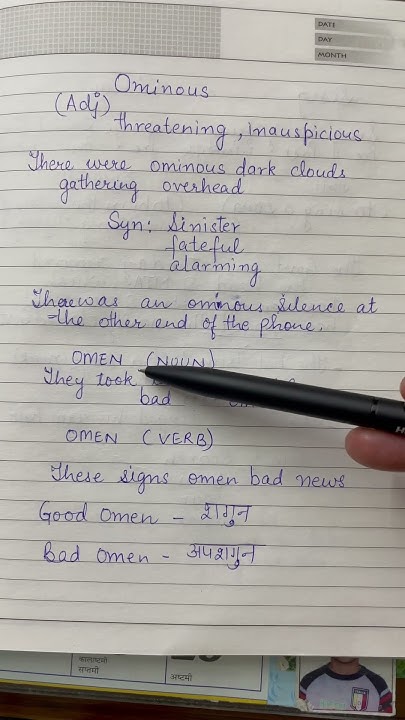 DATE
DAY
MONTH
Ominous
(Adj)
threatening, Inauspicious
There were ominous dark clouds
gathering overhead
Syn: Sinister
fateful
alarming
There was an ominous silence at
the other end of the phone.
OMEN (NOUN)
They took
bad
OMEN (VERB)
These signs omen bad news
Good Omen - शगुन
Bad omen - अपशगुन
कालाष्टमी
सप्तमी
अष्टमी